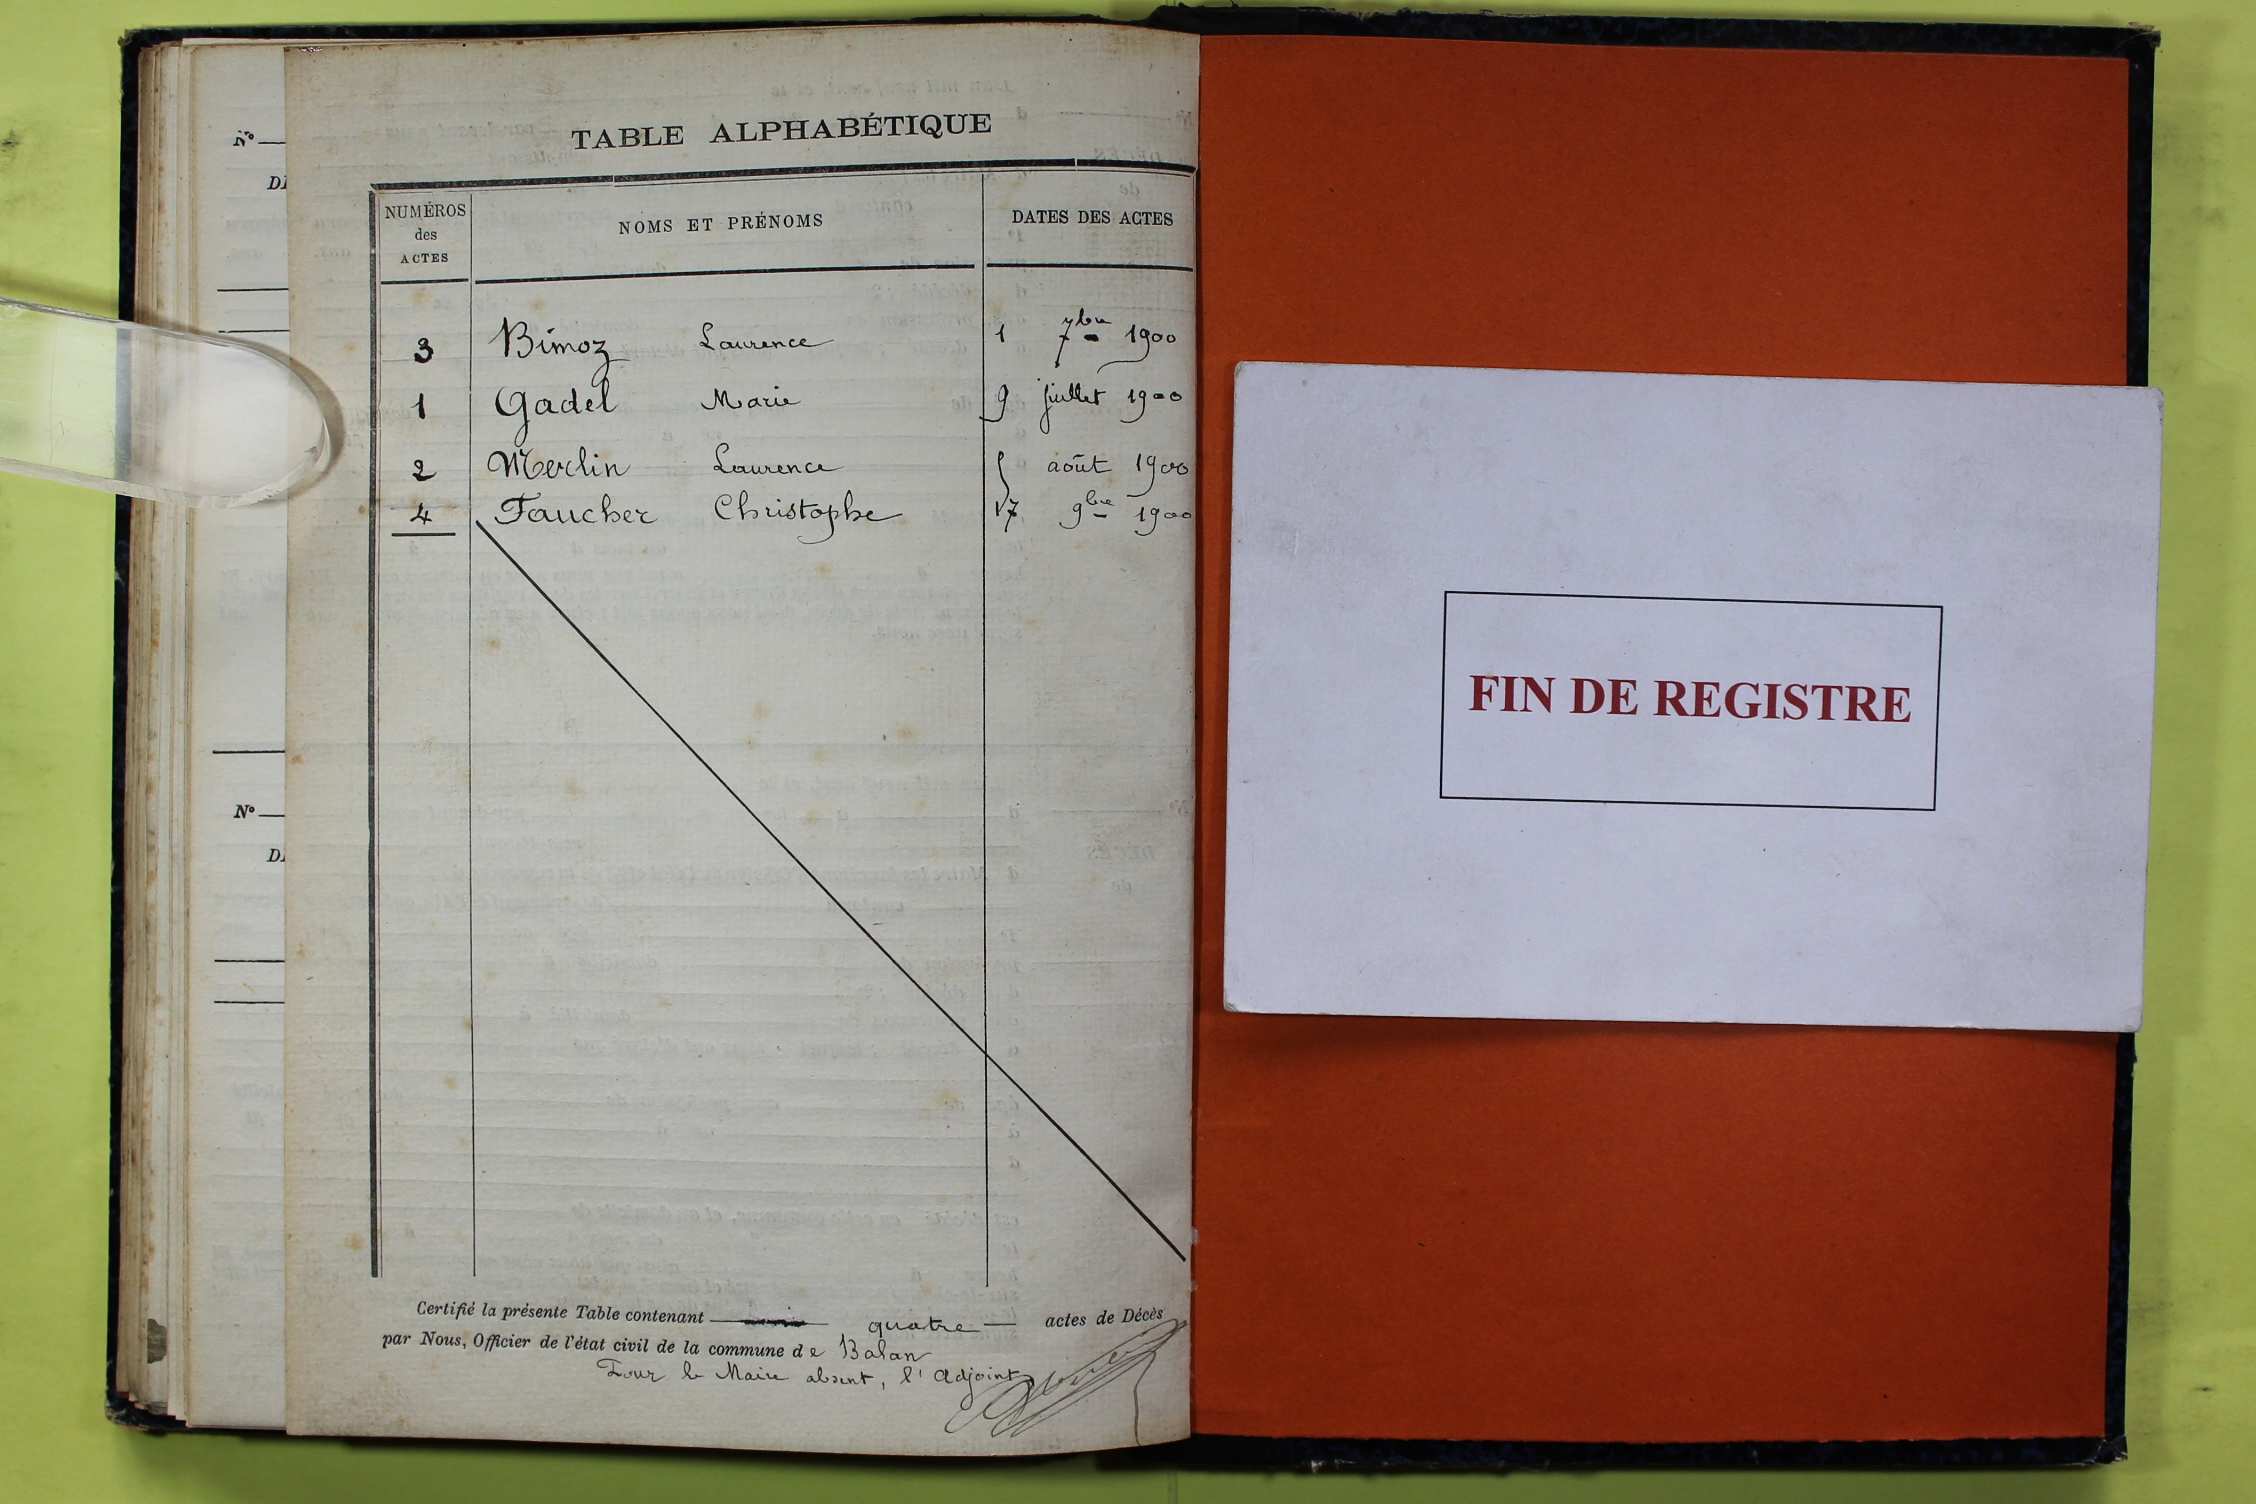 N°
TABLE ALPHABÉTIQUE
NUMÉROS des ACTES
NOMS ET PRÉNOMS
DATES DES ACTES
3 Bimoz Laurence 1 7bre 1900
1 Gadel Marie 9 juillet 1900
2 Merlin Laurence août 1900
4 Faucher Christophe 17 9bre 1900
N°
Certifié la présente Table contenant quatre actes de Décès
par Nous, Officier de l'état civil de la commune de Balan
Pour le Maire absent, l'Adjoint
FIN DE REGISTRE